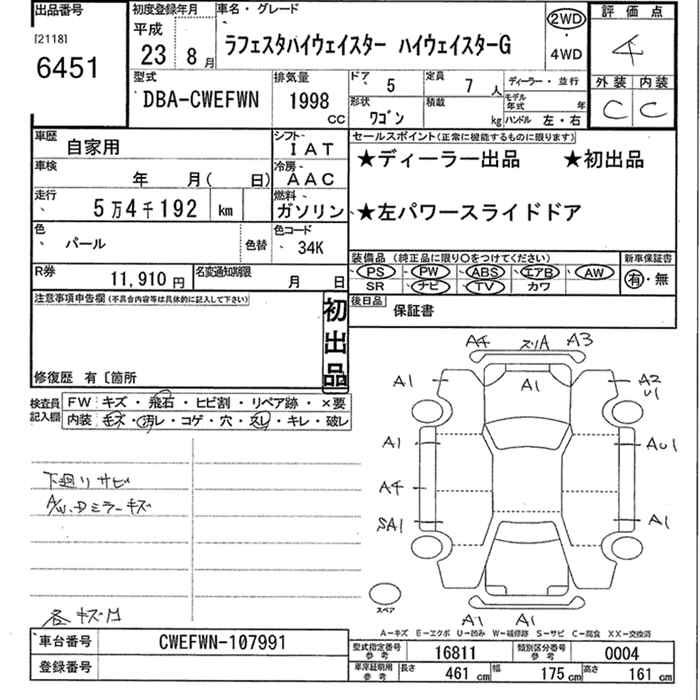 出品番号
[2118]
6451
初度登録年月
平成
23 8月
車名・グレード
ラフェスタハイウェイスター ハイウェイスターG
2WD
・
4WD
評価点
4
外装 内装
C C
型式
DBA-CWEFWN
排気量
1998
CC
ドア 5
定員 7 人
形状
ワゴン
積載
kg
ディーラー・並行
モデル年式 年
ハンドル 左・右
車歴 自家用
シフト IAT
車検 年 月( 日)
冷房 AAC
走行 5万4千192 km
燃料
ガソリン
色 パール
色替
色コード 34K
R券 11,910円
名変通知期限 月 日
セールスポイント(正常に機能するものに限ります)
★ディーラー出品 ★初出品
★左パワースライドドア
装備品 (純正品に限り○をつけてください)
PS PW ABS エアB AW
SR ナビ TV カワ
新車保証書
有・無
後日品 保証書
注意事項申告欄(不具合内容等は具体的に記入して下さい)
初出品
修復歴 有〔箇所
検査員記入欄
FW キズ・飛石・ヒビ割・リペア跡・×要
内装 キズ・汚レ・コゲ・穴・スレ・キレ・破レ
下廻りサビ
A/W、Dミラーキズ
各キズ凹
A4 スリA A3
A1 A1 A2
U1
A1 AU1
A4
SA1 A1
スペア
A1 A1
A-キズ E-エクボ U-凹み W-補修跡 S-サビ C-腐食 XX-交換済
車台番号 CWEFWN-107991
登録番号
型式指定番号 参考 16811
類別区分番号 参考 0004
車庫証明用 参考 長さ 461cm 幅 175cm 高さ 161cm